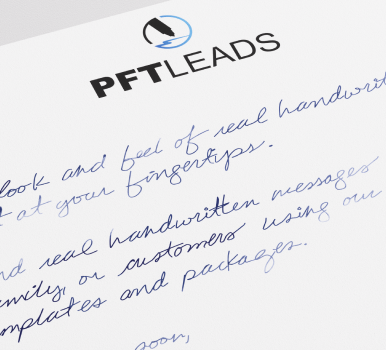 PFTLEADS
look and feel of real handwrit
t at your fingertips.
nd real handwritten messages
amily, or customers using our
mplates and packages.
soon,